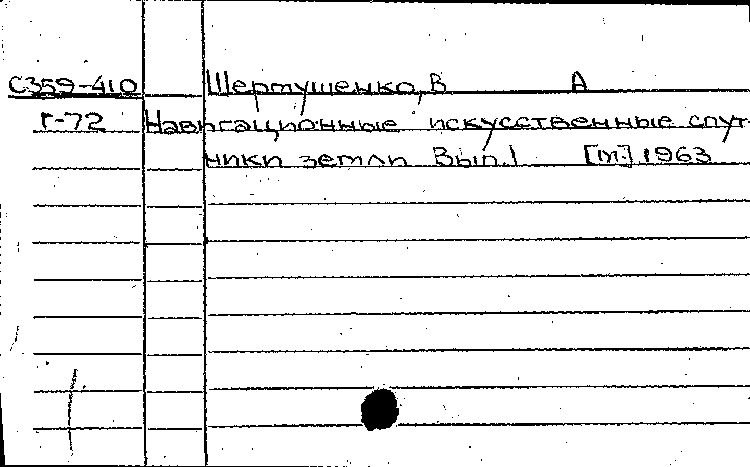 С359-410 Шертушенко, В А
Г-72 Навигационные искусственные спут-
ники земли Вып. 1 [м.] 1963